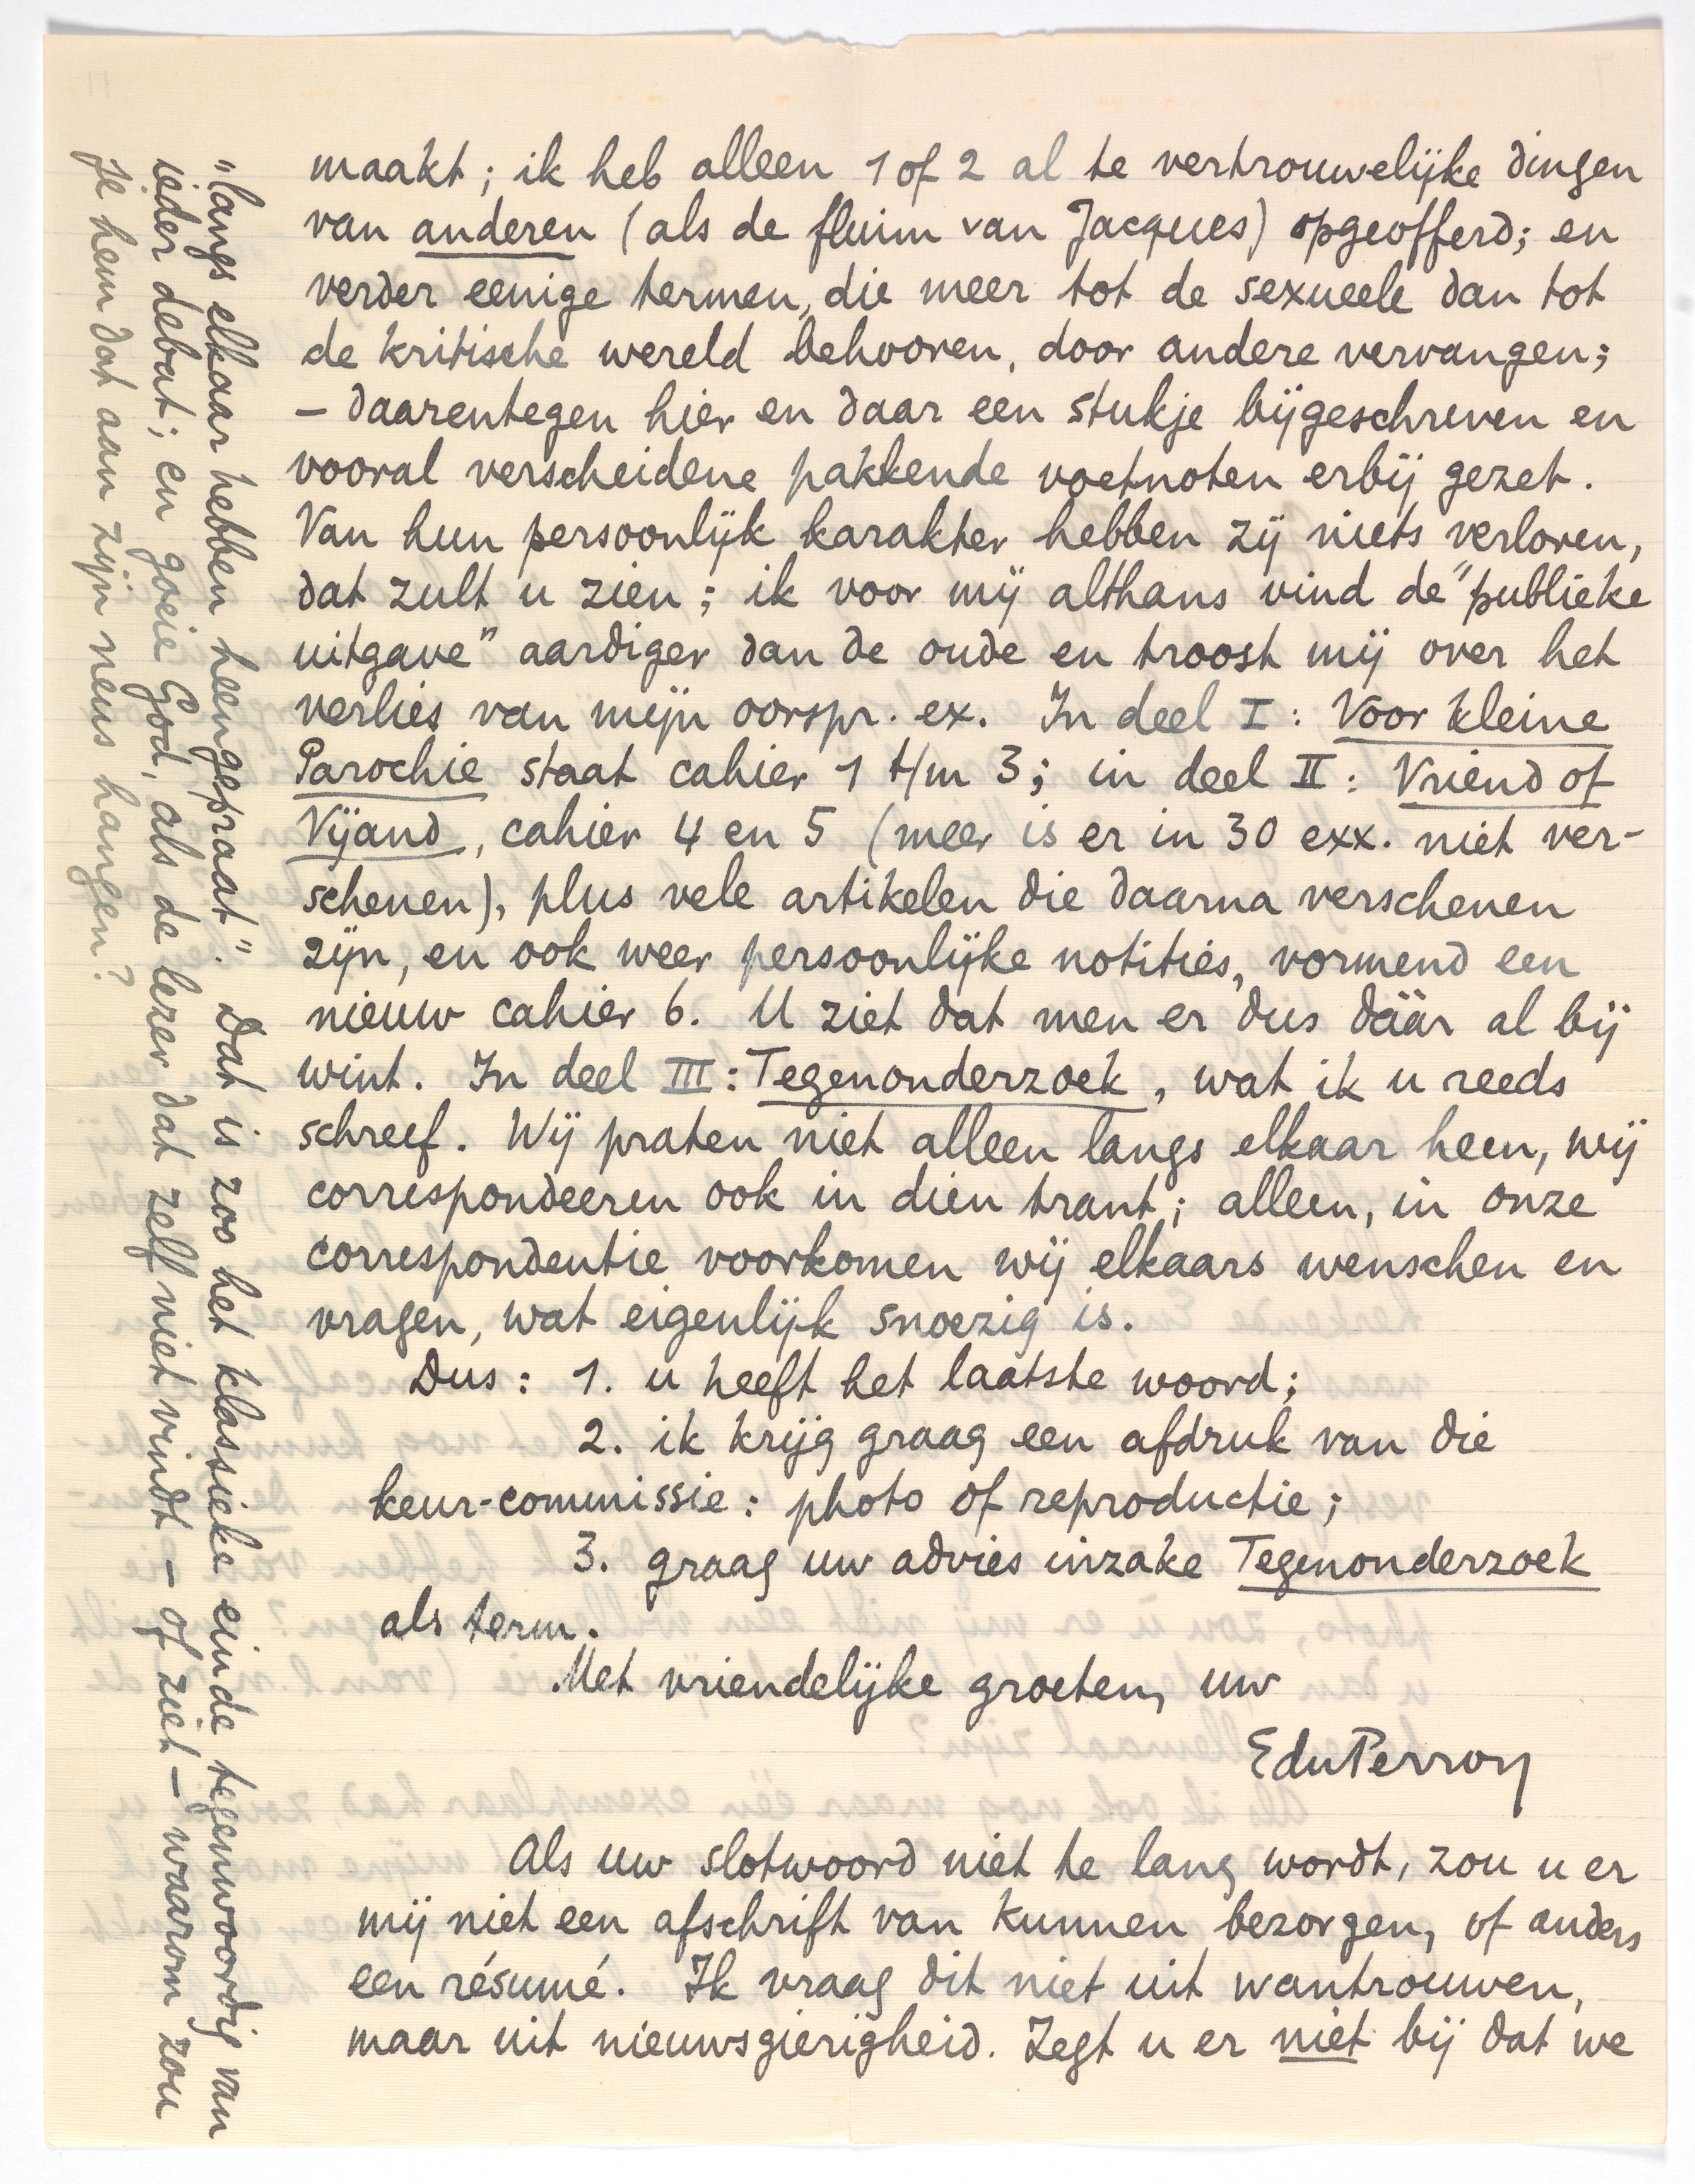 maakt; ik heb alleen 1 of 2 al te vertrouwelijke dingen
van anderen (als de fluim van Jacques) opgeofferd; en
verder eenige termen, die meer tot de sexueele dan tot
de kritische wereld behooren, door andere vervangen;
– daarentegen hier en daar een stukje bijgeschreven en
vooral verscheidene pakkende voetnoten erbij gezet.
Van hun persoonlijk karakter hebben zij niets verloren,
dat zult u zien; ik voor mij althans vind de "publieke
uitgave" aardiger dan de oude en troost mij over het
verlies van mijn oorspr. ex. In deel I: Voor kleine
Parochie staat cahier 1 t/m 3; in deel II: Vriend of
Vijand, cahier 4 en 5 (meer is er in 30 exx. niet ver-
schenen), plus vele artikelen die daarna verschenen
zijn, en ook weer persoonlijke notities, vormend een
nieuw cahier 6. U ziet dat men er dus dáár al bij
wint. In deel III: Tegenonderzoek, wat ik u reeds
schreef. Wij praten niet alleen langs elkaar heen, wij
correspondeeren ook in dien trant; alleen, in onze
correspondentie voorkomen wij elkaars wenschen en
vragen, wat eigenlijk snoezig is.
Dus: 1. u heeft het laatste woord;
2. ik krijg graag een afdruk van die
keur-commissie: photo of reproductie;
3. graag uw advies inzake Tegenonderzoek
als term.
Met vriendelijke groeten, uw
EduPerron
Als uw slotwoord niet te lang wordt, zou u er
mij niet een afschrift van kunnen bezorgen, of anders
een résumé. Ik vraag dit niet uit wantrouwen,
maar uit nieuwsgierigheid. Zegt u er niet bij dat we
"langs elkaar hebben heengepraat". Dat is zoo het klassieke einde tegenwoordig van
ieder debat; en goeie God, als de lezer dat zelf niet vindt – of ziet – waarom zou
je hem dat aan zijn neus hangen?